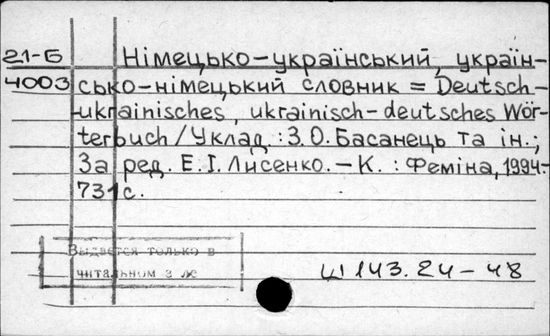 21-Б Німецько-український, україн-
4003 сько-німецький словник = Deutsch-
ukrainisches, ukrainisch-deutsches Wör-
terbuch / Уклад.: З. О. Басанець та ін.;
За ред. Е. І. Лисенко. — К. : Феміна, 1994.-
731 с.
Выдается только в
читальном з ле
Ш143.24-48